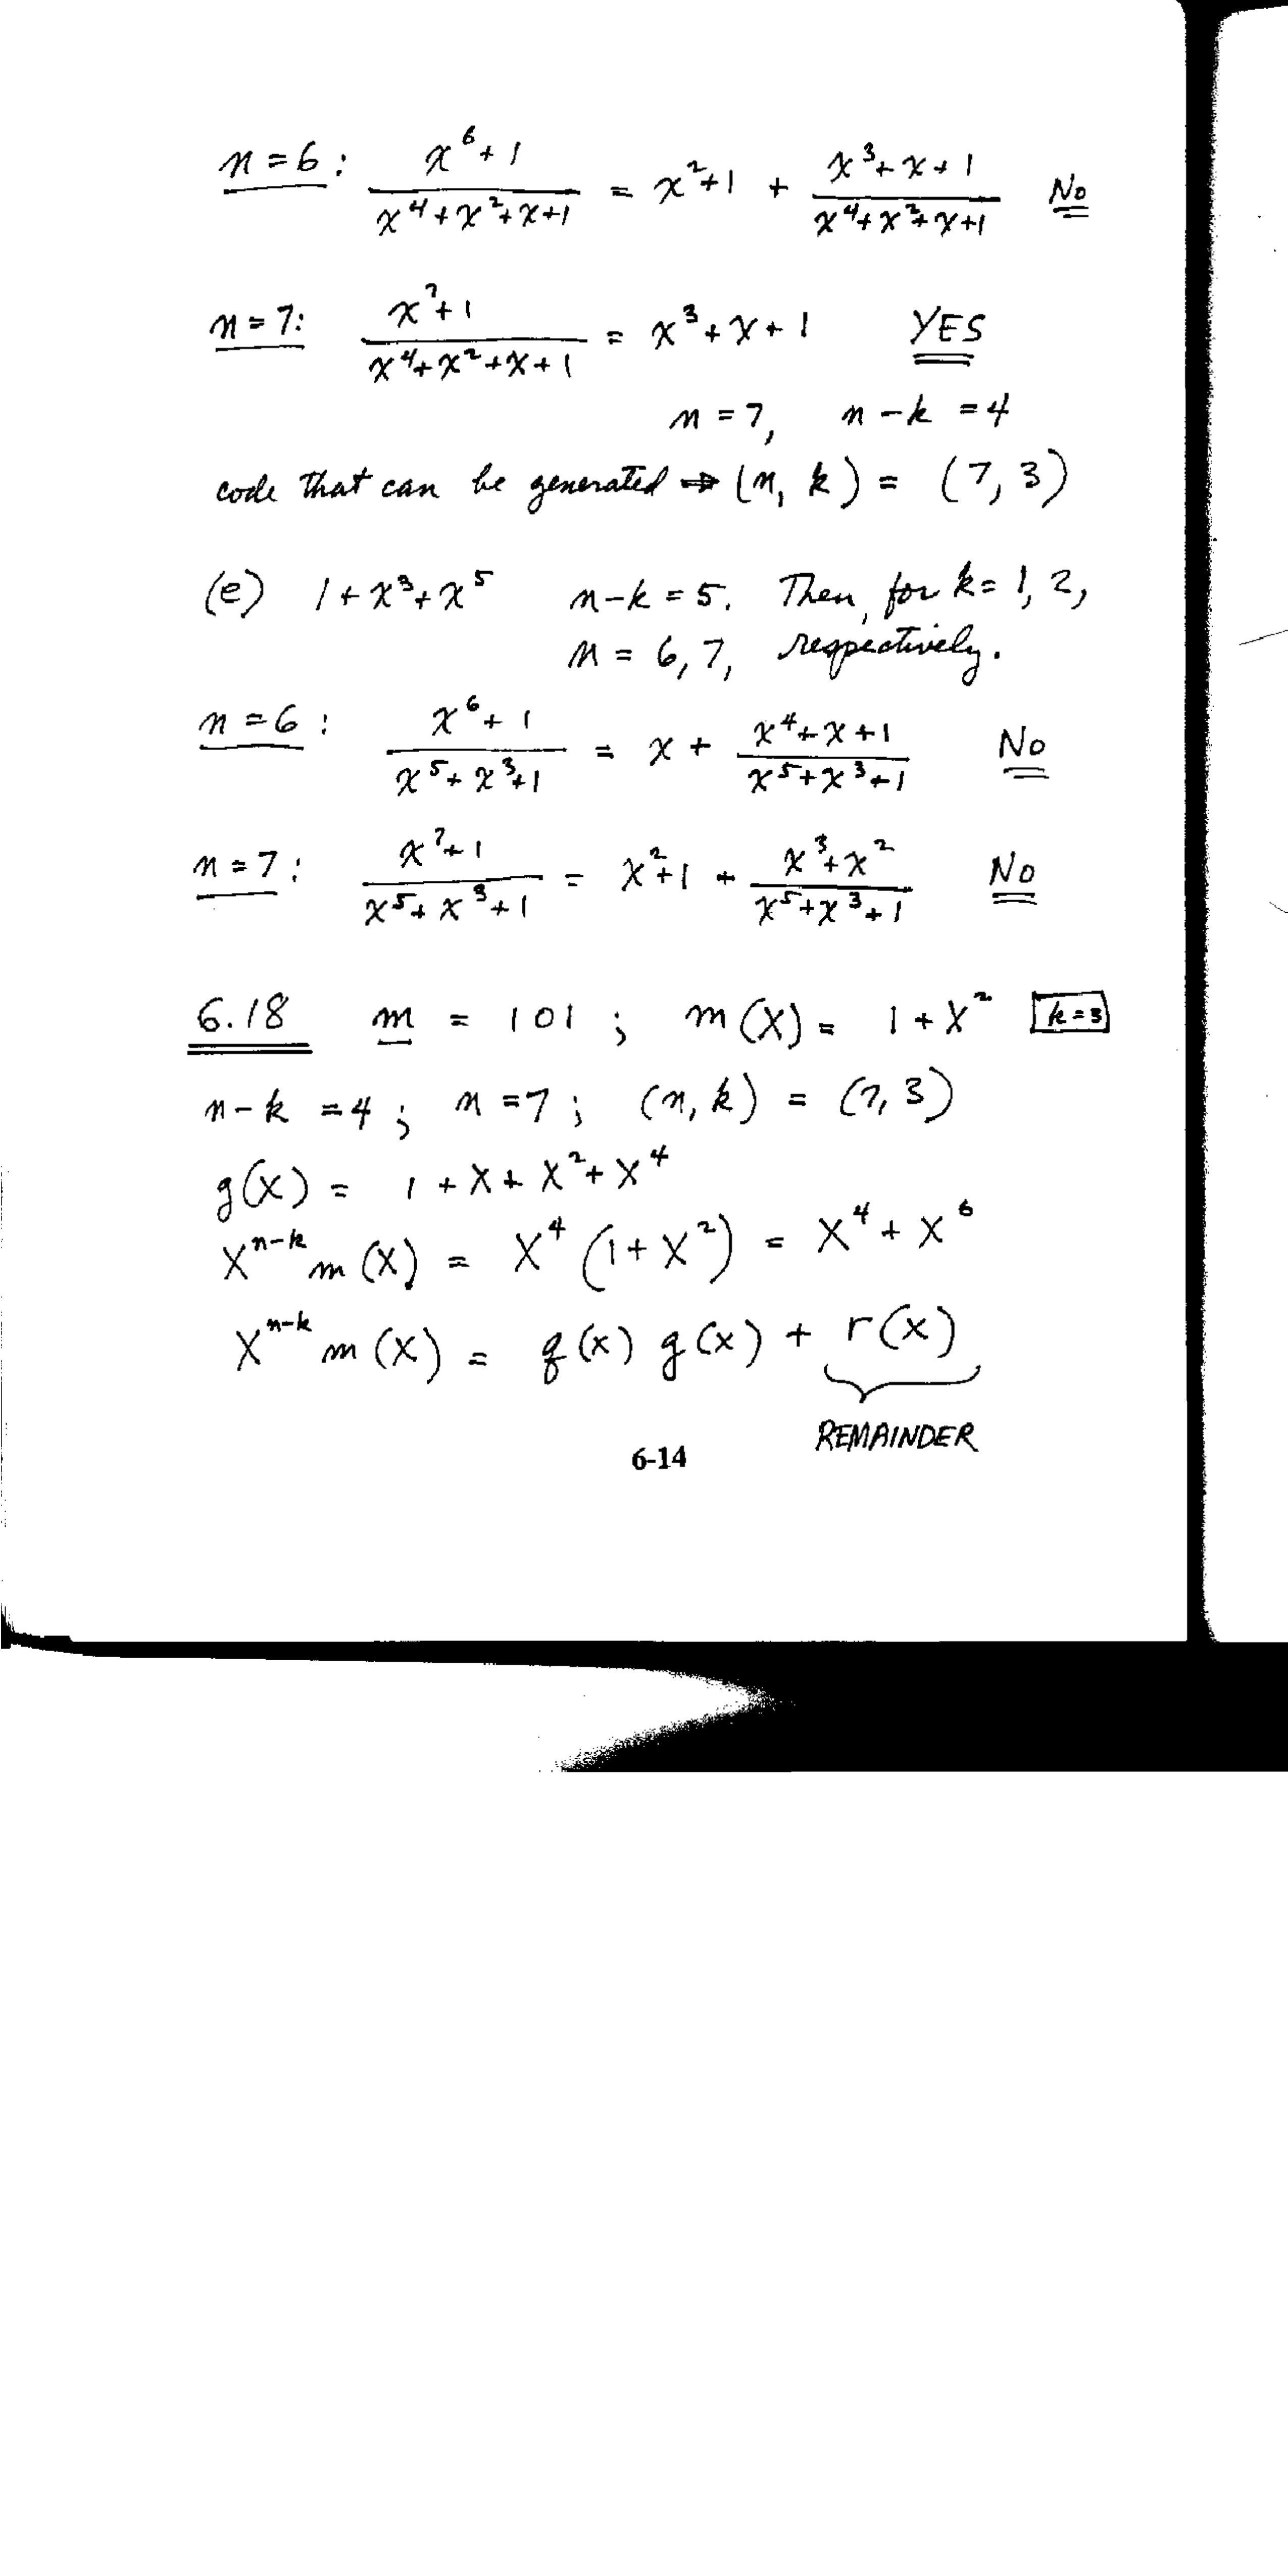 n = 6 : (x^6 + 1)/(x^4 + x^2 + x + 1) = x^2 + 1 + (x^3 + x + 1)/(x^4 + x^2 + x + 1) No
n = 7: (x^7 + 1)/(x^4 + x^2 + x + 1) = x^3 + x + 1 YES
n = 7, n - k = 4
code that can be generated ⇒ (n, k) = (7, 3)
(e) 1 + x^3 + x^5 n - k = 5. Then, for k = 1, 2,
n = 6, 7, respectively.
n = 6 : (x^6 + 1)/(x^5 + x^3 + 1) = x + (x^4 + x + 1)/(x^5 + x^3 + 1) No
n = 7 : (x^7 + 1)/(x^5 + x^3 + 1) = x^2 + 1 + (x^3 + x^2)/(x^5 + x^3 + 1) No
6.18 m = 101 ; m(X) = 1 + X^2 k = 3
n - k = 4 ; n = 7 ; (n, k) = (7, 3)
g(X) = 1 + X + X^2 + X^4
X^{n-k} m(X) = X^4 (1 + X^2) = X^4 + X^6
X^{n-k} m(X) = q(x) g(x) + r(x)
REMAINDER
6-14